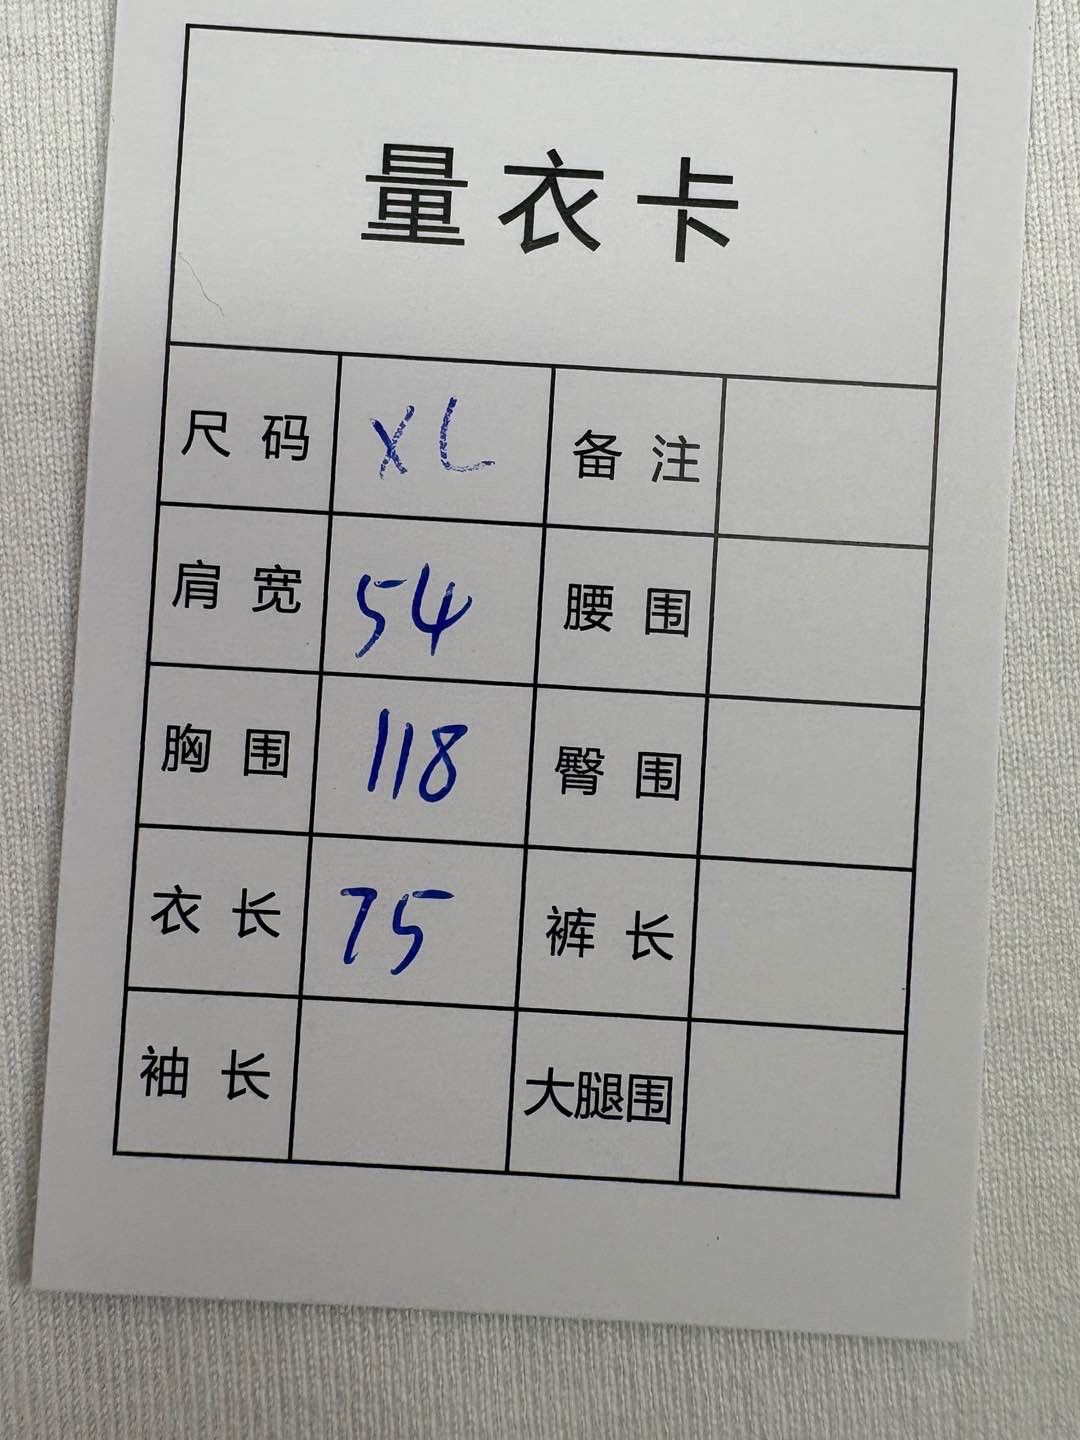 量衣卡
尺码 XL 备注
肩宽 54 腰围
胸围 118 臀围
衣长 75 裤长
袖长 大腿围